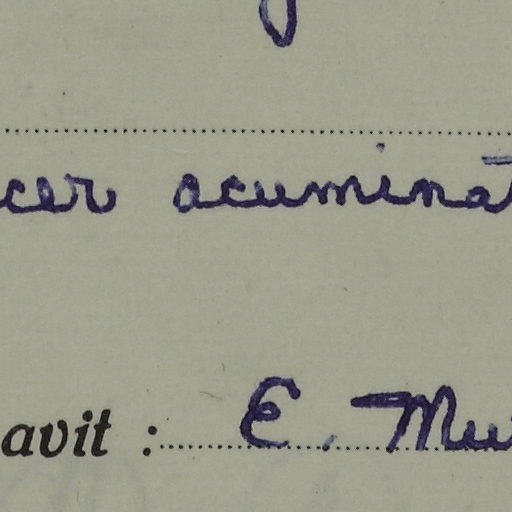 cer acuminat
avit : E. Mu